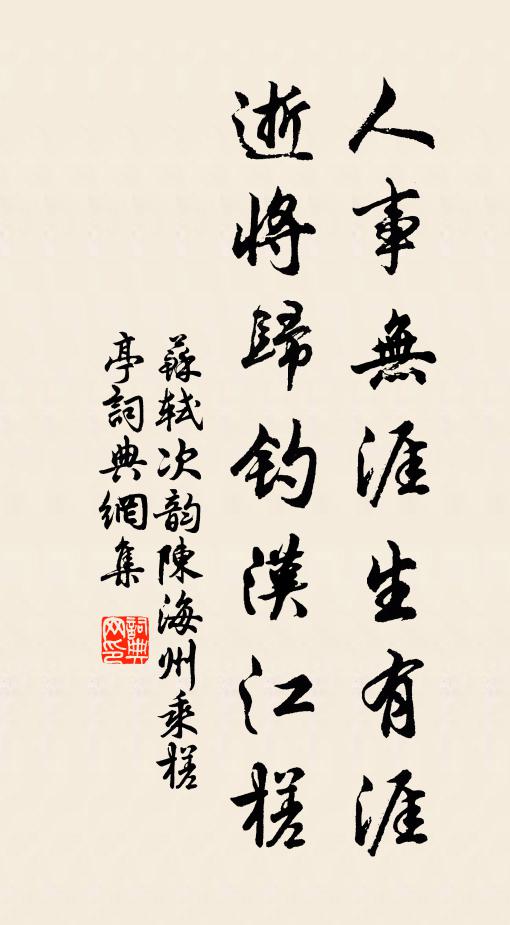 人事無涯生有涯
逝將歸釣漢江槎
蘇軾次韵陳海州乘槎
亭詞典網集
詞典网印